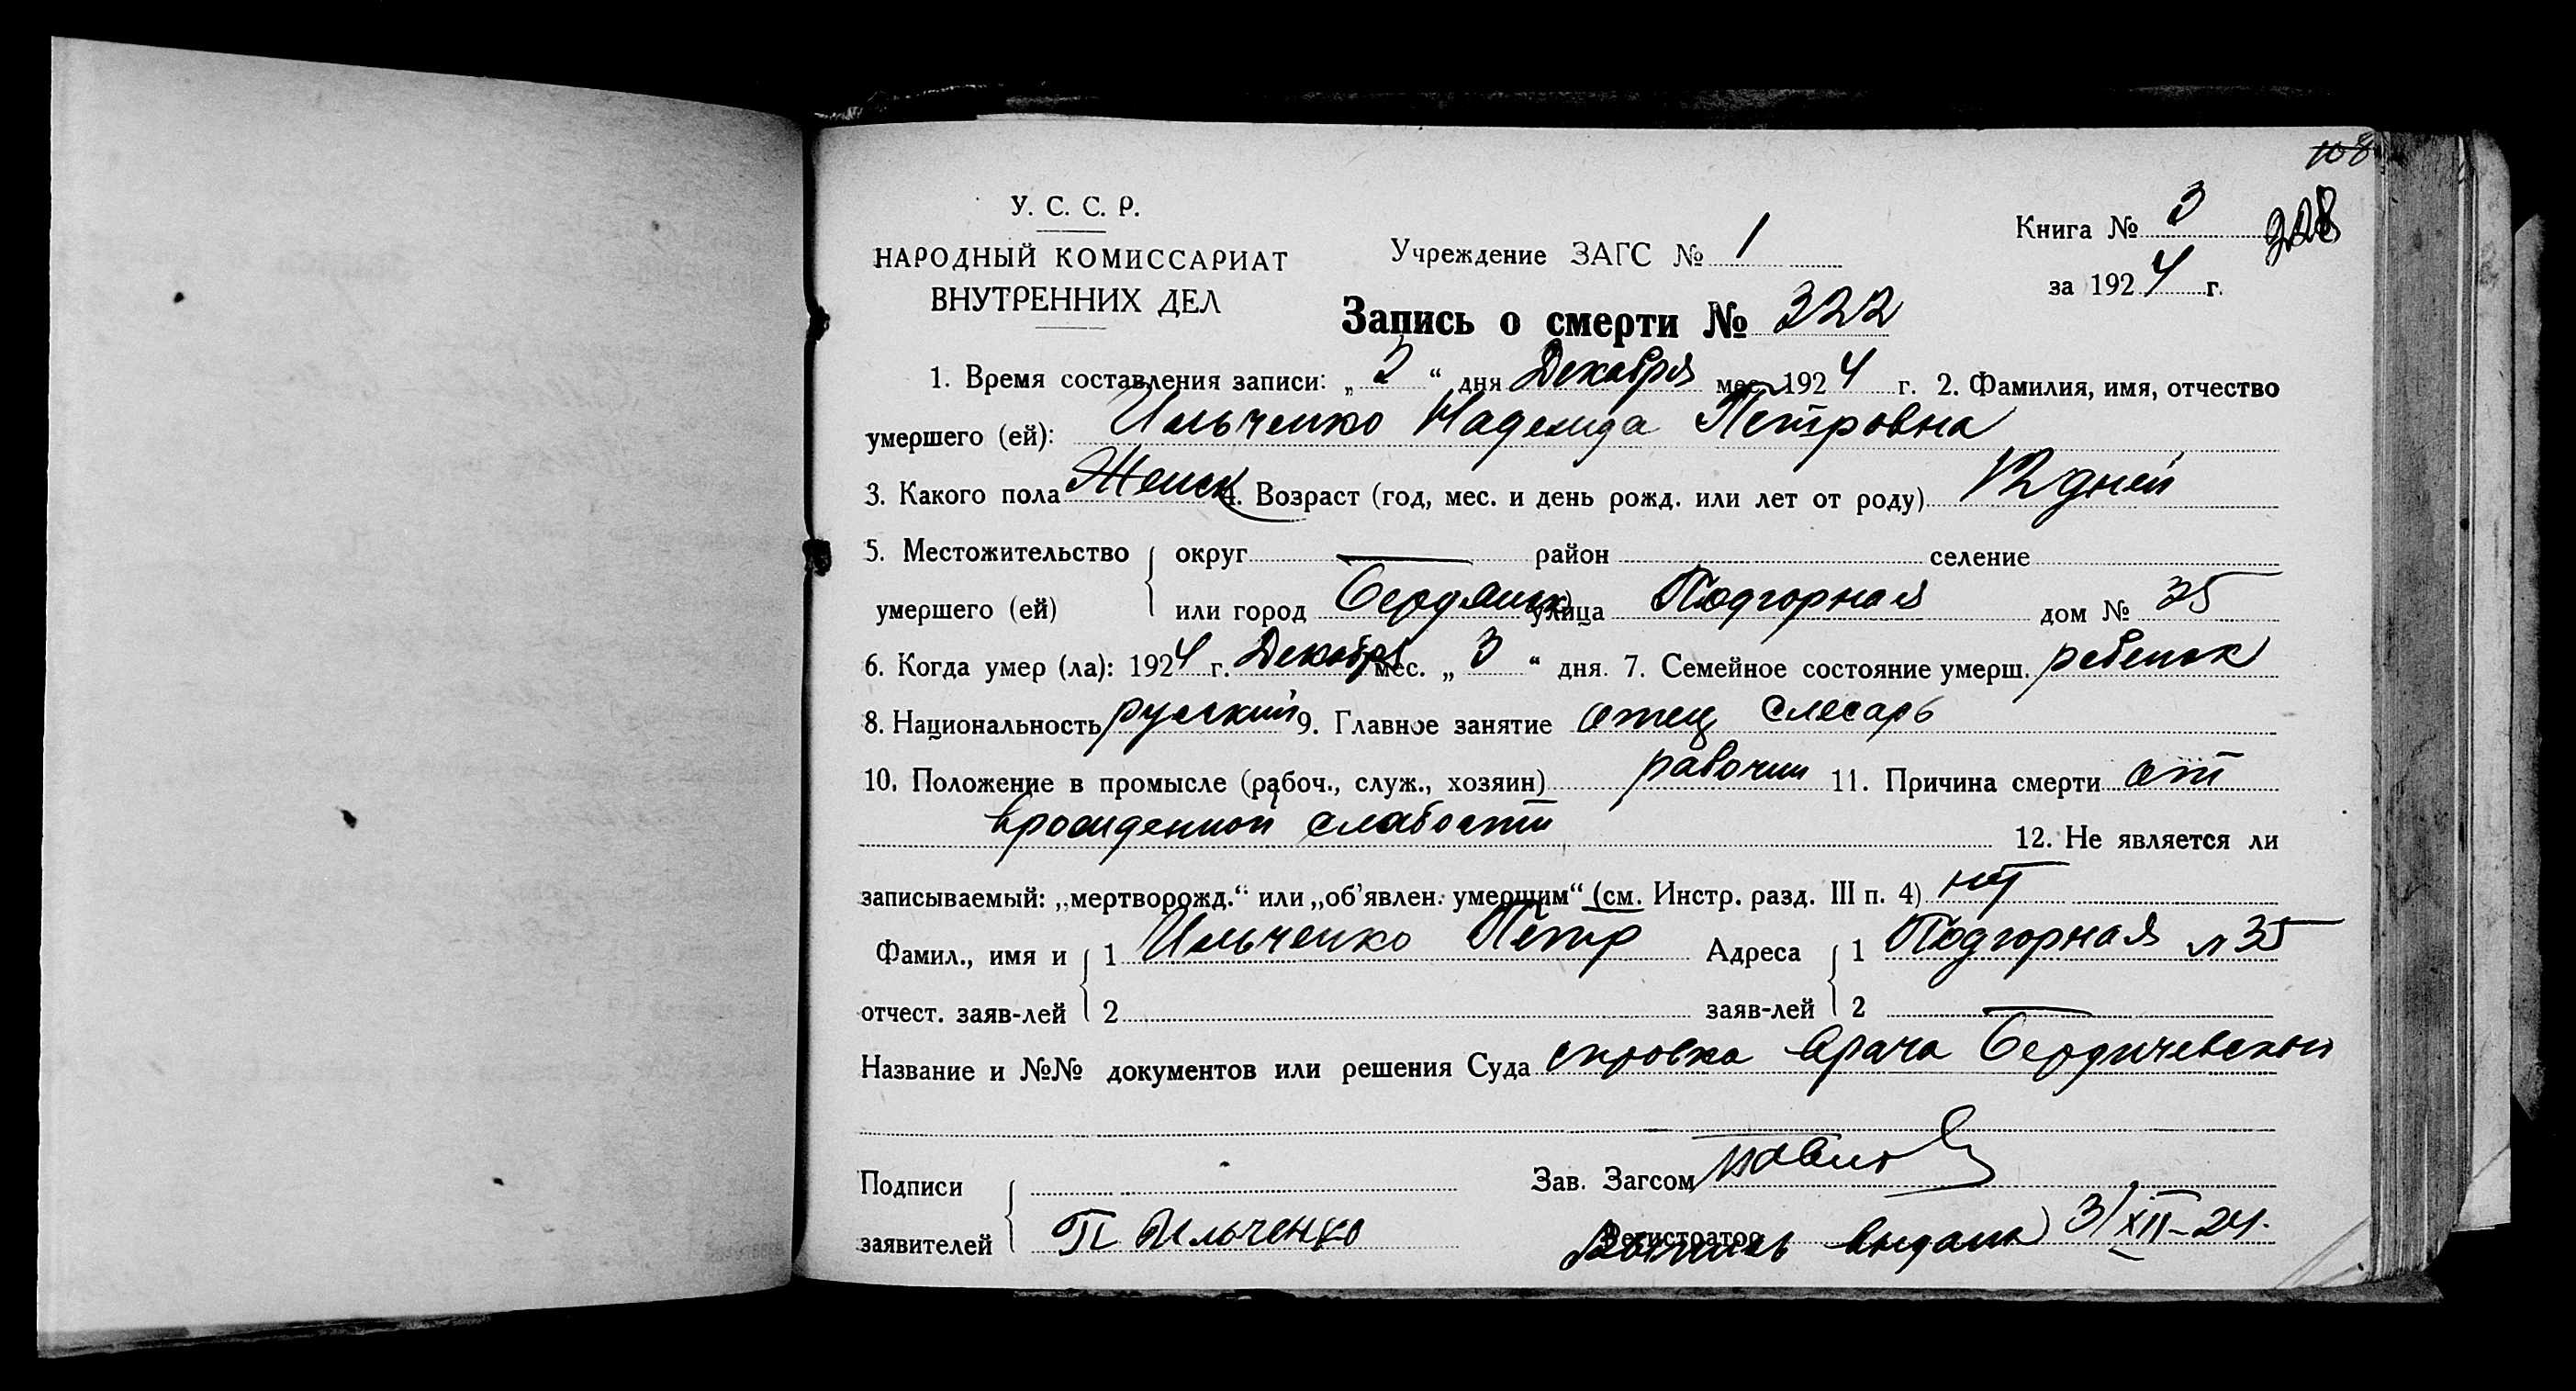 108
У. С. С. Р.
НАРОДНЫЙ КОМИССАРИАТ
ВНУТРЕННИХ ДЕЛ
Учреждение ЗАГС № 1
Книга № 3 208
за 1924 г.
Запись о смерти № 322
1. Время составления записи: „ 3 “ дня Декабря мес. 1924 г. 2. Фамилия, имя, отчество
умершего (ей): Ильченко Надежда Петровна
3. Какого пола Женск 4. Возраст (год, мес. и день рожд. или лет от роду) 12 дней
5. Местожительство округ — район селение
умершего (ей) или город Бердянск улица Подгорная дом № 35
6. Когда умер (ла): 1924 г. Декабря мес. „ 3 “ дня. 7. Семейное состояние умерш. ребенок
8. Национальность русский 9. Главное занятие отец слесарь
10. Положение в промысле (рабоч., служ., хозяин) рабочий 11. Причина смерти от
врожденной слабости 12. Не является ли
записываемый: „мертворожд.“ или „об’явлен. умершим“ (см. Инстр. разд. III п. 4) нет
Фамил., имя и 1 Ильченко Петр Адреса 1 Подгорная № 35
отчест. заяв-лей 2 заяв-лей 2 —
Название и №№ документов или решения Суда справка врача Бердичевской
Подписи Зав. Загсом
заявителей П Ильченко Регистратор выдана 3/XII-24.